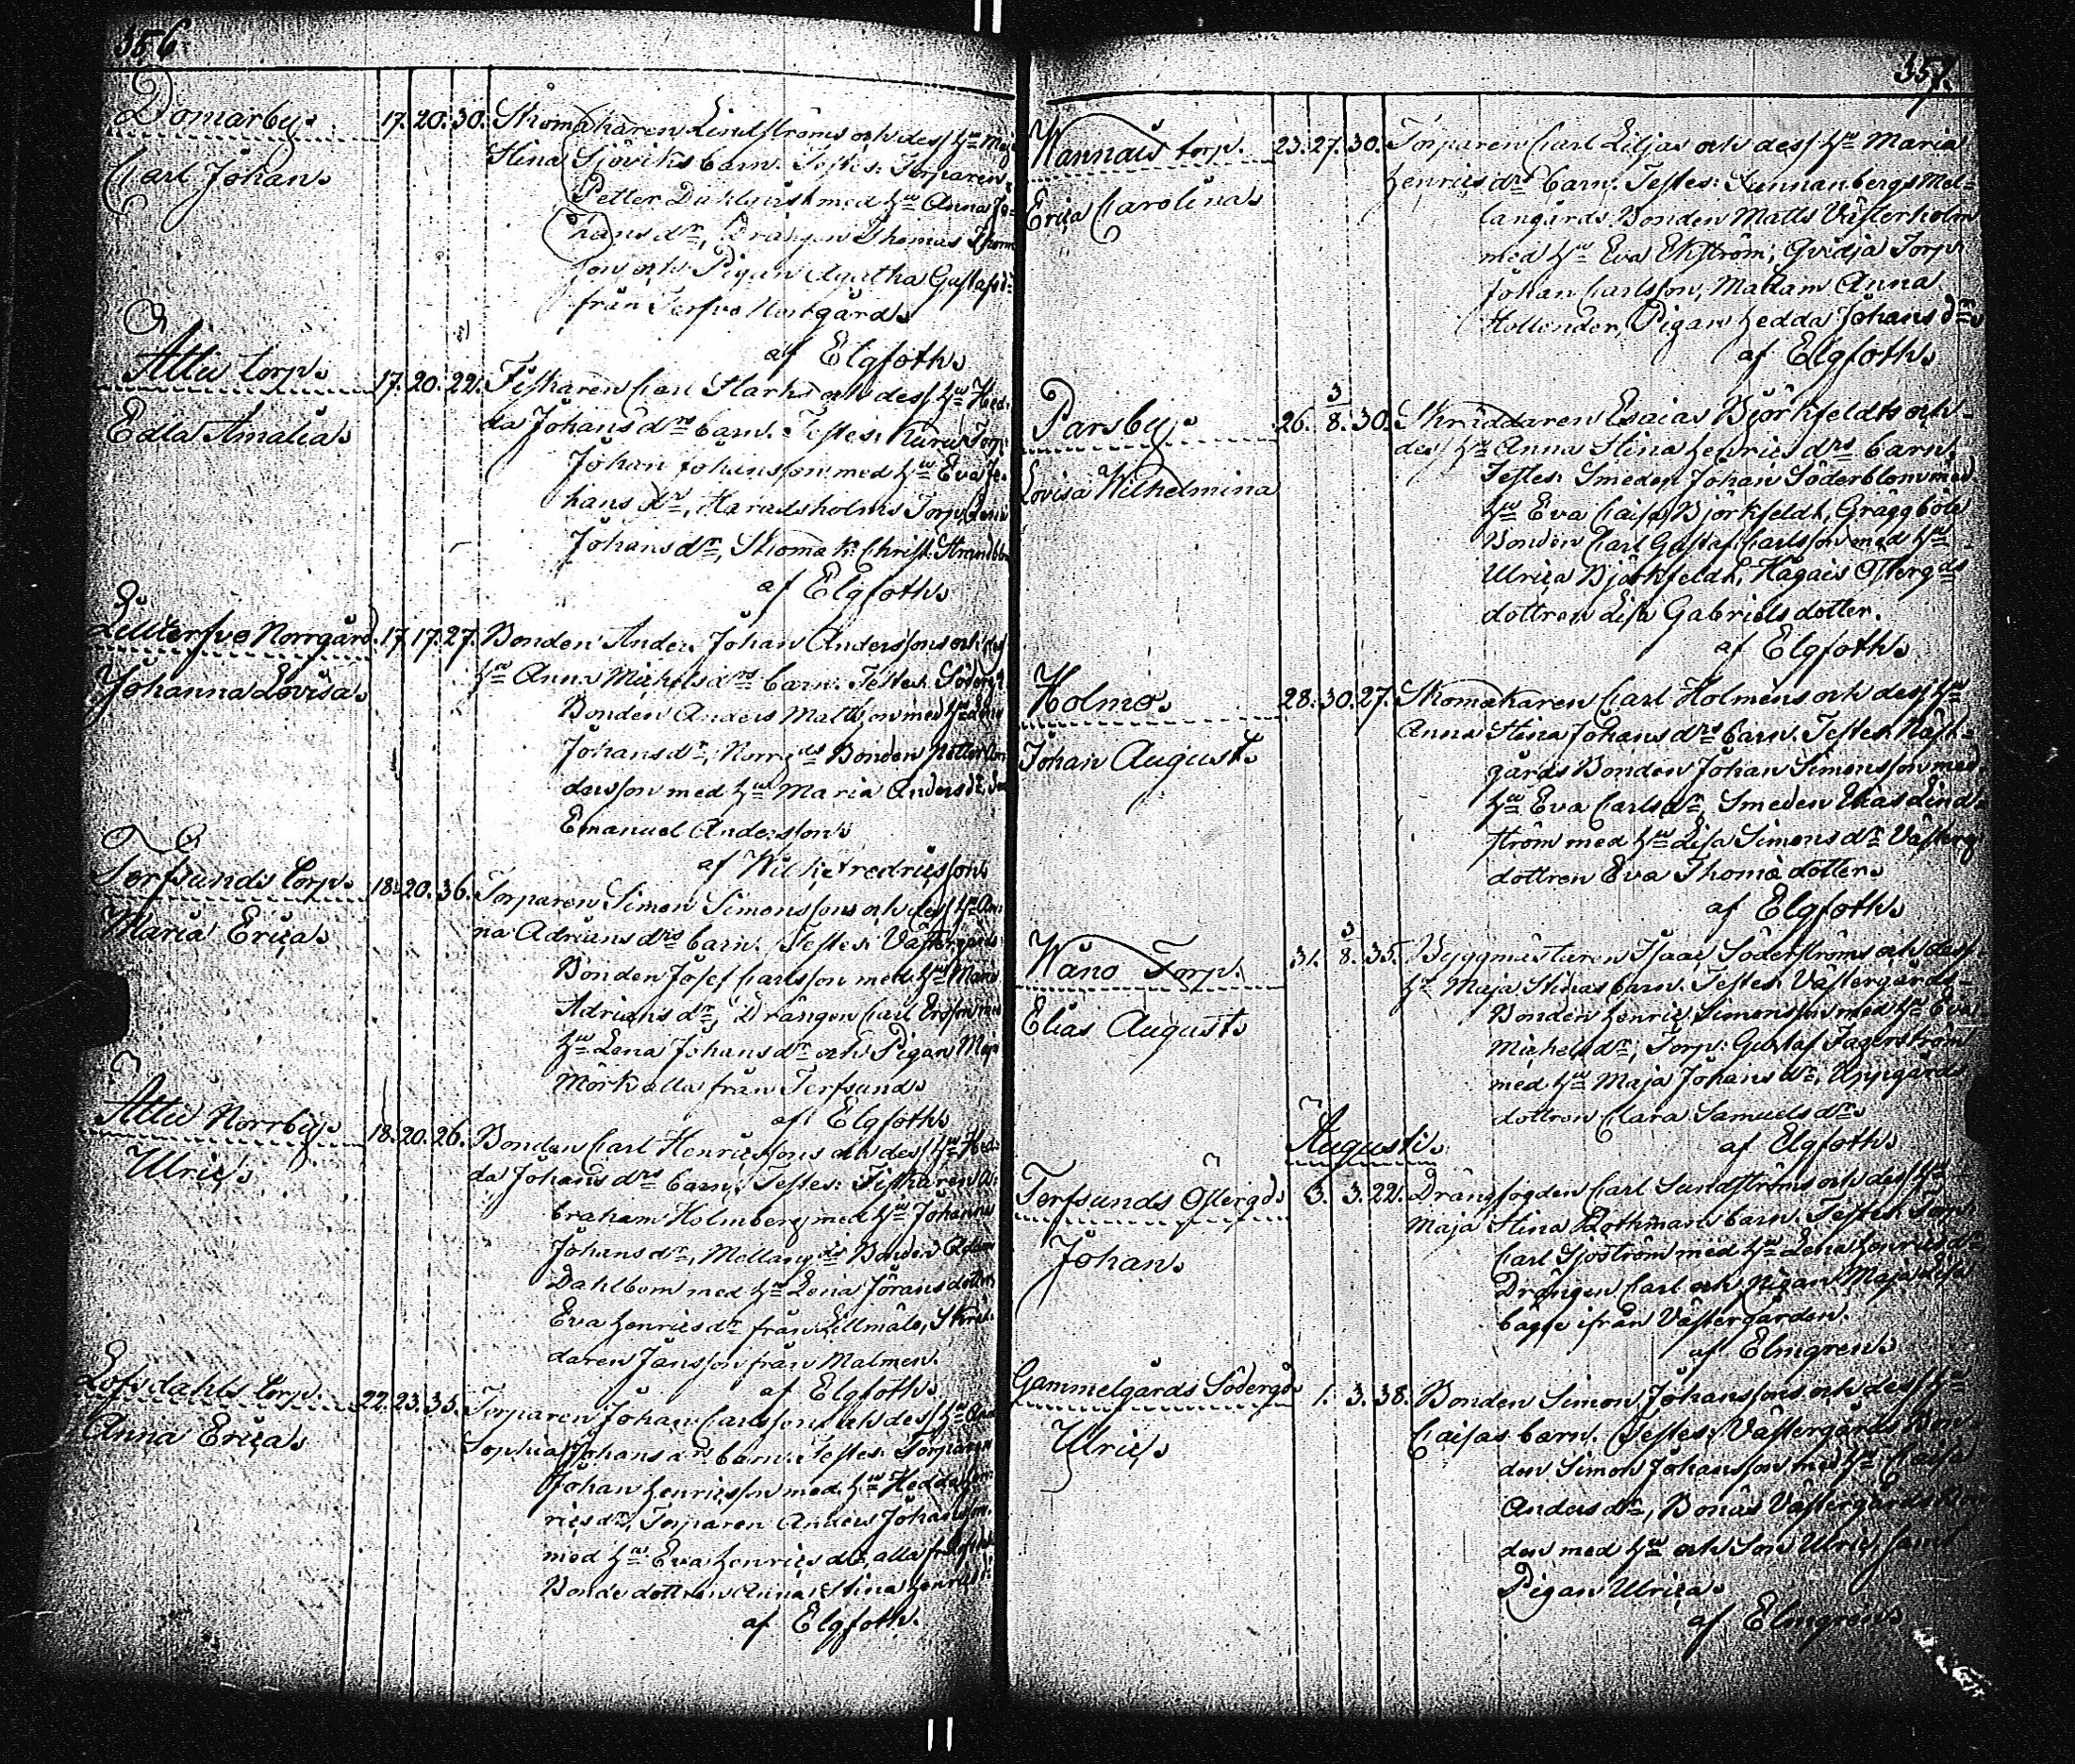 356.
Domarby. 17. 20. 30. Skomakaren Lindströms och dess Hu Maja
Stina Sjöviks barn. Testes: Torparen
Carl Johan.
Petter Dahlqvist med Hu Anna Jo=
hans dr, Drängen Thomas Thom
son och Pigan Agatha Gustafsd
från Terfvo Norrgård.
af Elgfoth.
Attu torp. 17. 20. 22. Fiskaren Carl Starks och dess Hu Hed=
da Johans drs barn. Testes: Torp:
Edla Amalia.
Johan Johansson med Hu Eva Jo=
hans dr, Haradsholms Torp. Lena
Johans dr, Skomak: Christ: Strandbom
af Elgfoth.
Lillterfvo Norrgård. 17. 17. 27. Bonden Ander. Johan Anderssons och dess
Hu Anna Michels drs barn. Testes: Söderg.
Johanna Lovisa.
Bonden Anders Mattsson med Hu
Johans dr, Norrgds Bonden Petter An
dersson med Hu Maria Anders dr,
Emanuel Andersson.
af Wilh: Fredricsson.
Terfsunds torp. 18. 20. 36. Torparen Simon Simonssons och dess Hu An=
na Adrians drs barn. Testes: Västergårds
Maria Erica.
Bonden Josef Carlsson med Hu Maria
Adrians dr, Drängen Carl Ersson med
Hu Lena Johans dr och Pigan Maja
Mörk alla från Terfsund.
af Elgfoth.
Attu Norrby. 18. 20. 26. Bonden Carl Henricssons och dess Hu Hed=
da Johans drs barn. Testes: Fiskaren A=
Ulric.
braham Holmberg med Hu Johanna
Johans dr, Mellangds Bonden Adam
Dahlbom med Hu Lena Jörans dotter,
Eva Henrics dr från Lillmälo, Skräd=
daren Jansson från Malmen.
af Elgfoth.
Lofsdahls torp. 22. 23. 35. Torparen Johan Carlssons och dess Hu
Sophia Johans drs barn. Testes: Torparen
Anna Erica.
Johan Henricsson med Hu Hedda Hen=
rics dr, Torparen Anders Johansson
med Hu Eva Henrics dr, alla från
Bonde dottren Anna Stina Henrics
af Elgfoth.
357.
Wannais torp. 23. 27. 30. Torparen Carl Liljas och dess Hu Maria
Henrics drs barn. Testes: Sunnanbergs Mel=
Erica Carolina.
langårds Bonden Matts Västerholm
med Hu Eva Ekström; Qvidja Torp:
Johan Carlsson, Madam Anna
Hollender, Pigan Hedda Johans dr.
af Elgfoth.
Parsby. 26. 3/8. 30. Skräddaren Esaias Björkfeldts och
dess Hu Anna Stina Henrics drs barn.
Lovisa Wilhelmina
Testes: Smeden Johan Söderblom med
Hu Eva Caisa Björkfeldt, Gräggböle
Bonden Carl Gustaf Carlsson med Hu
Ulrica Björkfeldt, Hagais Östergds
dottren Lisa Gabriels dotter.
af Elgfoth.
Holmo. 28. 30. 27. Skomakaren Carl Holmens och dess Hu
Anna Stina Johans drs barn. Testes:
Johan August.
gårds Bonden Johan Simonsson med
Hu Eva Carls dr, Smeden Elias Lind=
ström med Hu Lisa Simons dr, Västerg
dottren Eva Thomæ dotter.
af Elgfoth.
Wåno Torp. 31. 3/8. 35. Byggmästaren Isaac Söderströms och dess
Hu Maja Stinas barn. Testes: Västergårds
Elias August.
Bonden Henric Simonsson med Hu Eva
Michels dr; Torp: Gustaf Fagerström
med Hu Maja Johans dr, Uppgårds
dottren Clara Samuels dr.
af Elgfoth.
Augusti.
Terfsunds Östergd. 3. 3. 22. Drängfogden Carl Sundströms och dess Hu
Maja Stina Rothmans barn. Testes: Torp
Johan.
Carl Sjöström med Hu Lena Henrics dr,
Drängen Carl och pigan Maja Lisa
bägge ifrån Västergården.
af Elmgren.
Gammelgårds Södergd. 1. 3. 38. Bonden Simon Johanssons och dess Hu
Caisas barn. Testes: Västergårds Bon=
Ulric.
den Simon Johansson med Hu Caisa
Anders dr, Bonäs Västergårds Bon
den med Hu och Son Ulric, samt
Pigan Ulrica.
af Elmgren.